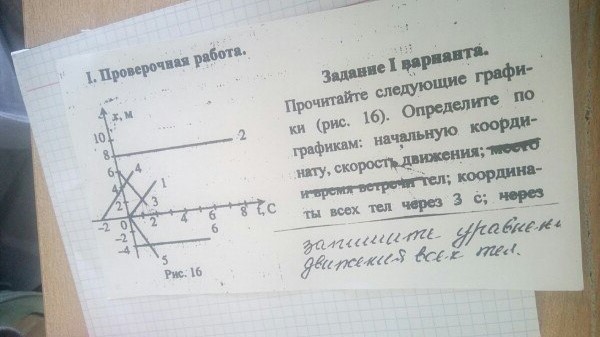 I. Проверочная работа.
x, м
10
8
6
4
2
-2
0
2
4
6
8
t, с
-2
-4
1
2
3
4
5
6
Рис. 16
Задание I варианта.
Прочитайте следующие графи-
ки (рис. 16). Определите по
графикам: начальную коорди-
нату, скорость движения; место
и время встречи тел; координа-
ты всех тел через 3 с; через
запишите уравнени
движений всех тел.